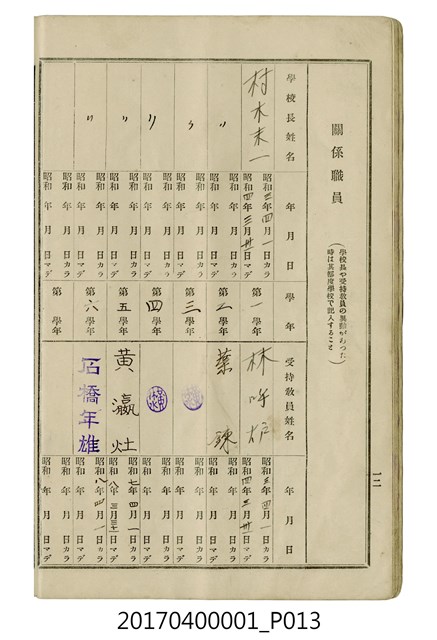 關係職員
(學校長や受持教員の異動があった
時は其都度學校で記入すること)
學校長姓名
年 月 日
學年
受持教員姓名
年 月 日
村木末一
昭和三年四月一日カラ
昭和四年三月卅日マデ
第一學年
林
昭和三年四月一日カラ
昭和四年三月卅日マデ
〃
昭和 年 月 日カラ
昭和 年 月 日マデ
第二學年
葉
昭和 年 月 日カラ
昭和 年 月 日マデ
〃
昭和 年 月 日カラ
昭和 年 月 日マデ
第三學年
昭和 年 月 日カラ
昭和 年 月 日マデ
〃
昭和 年 月 日カラ
昭和 年 月 日マデ
第四學年
昭和 年 月 日カラ
昭和 年 月 日マデ
〃
昭和 年 月 日カラ
昭和 年 月 日マデ
第五學年
黃瀛灶
昭和七年四月一日カラ
昭和八年三月三十一日マデ
〃
昭和 年 月 日カラ
昭和 年 月 日マデ
第六學年
石橋年雄
昭和八年四月一日カラ
昭和 年 月 日マデ
昭和 年 月 日カラ
昭和 年 月 日マデ
第 學年
昭和 年 月 日カラ
昭和 年 月 日マデ
一二
20170400001_P013